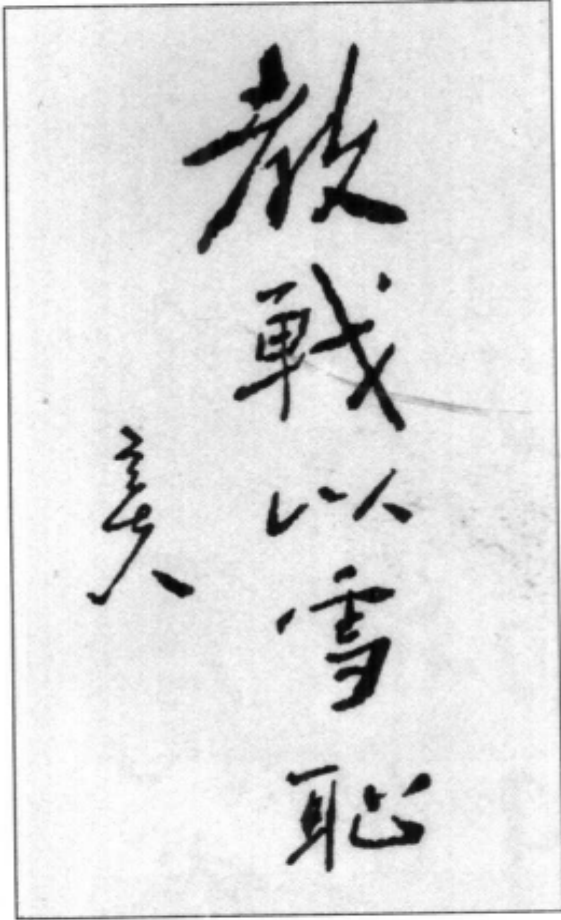 教戰以雪恥